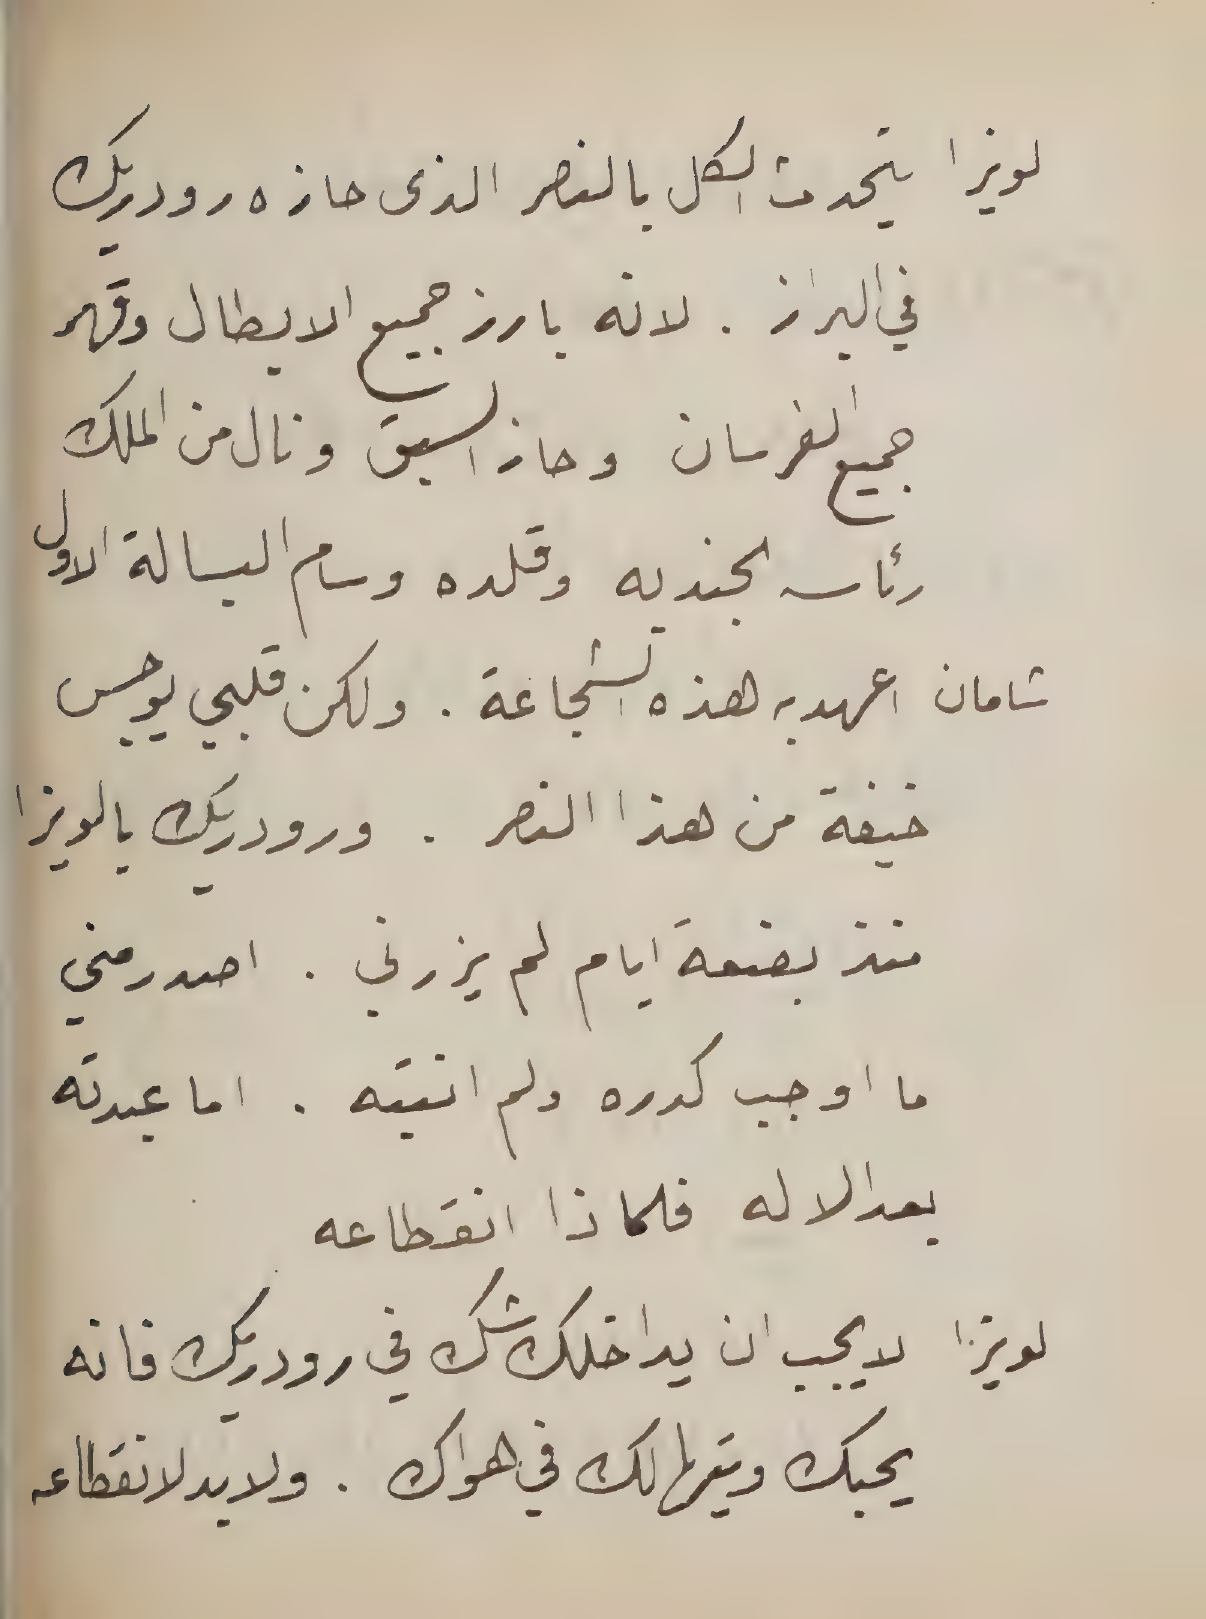 لويزا يتحدث الكل بالنصر الذى حازه رودريك
في البراز . لانه بارز جميع الابطال وقهر
جميع الفرسان وحاز السبق ونال من الملك
رئاسه الجنديه وقلده وسام البسالة الاول
شامان اعهد به هذه الشجاعة . ولكن قلبي يوجس
خيفة من هذا النصر . ورودريك يالويزا
منذ بضعة ايام لم يزرني . اصدر مني
ما اوجب كدره ولم انتبه . اما عبدته
بعد الاله فلماذا انقطاعه
لويزا لا يجب ان يداخلك شك في رودريك فانه
يحبك ويتهالك في هواك . ولابد لانقطاعه